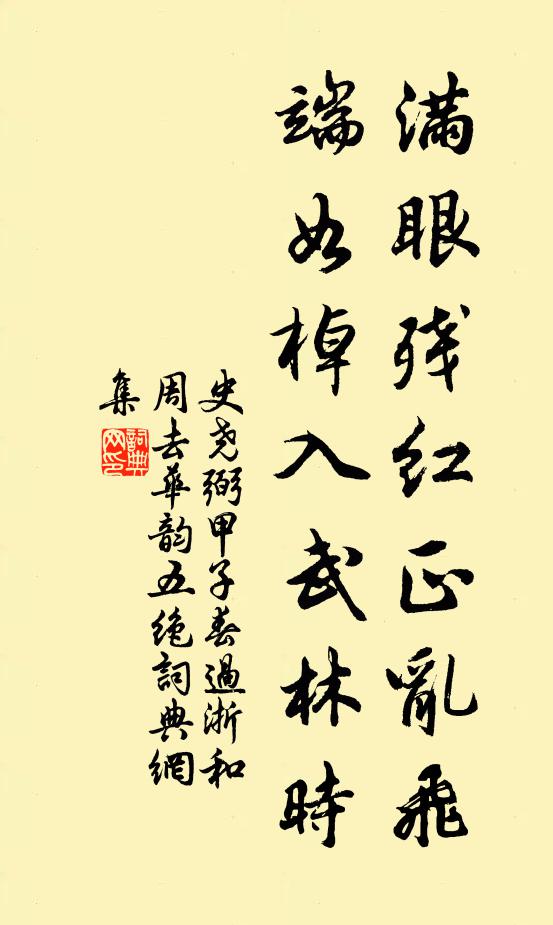 满眼残红正亂飛
端如棹入武林時
史堯弼甲子春過浙和
周去華韵五絶詞典網
集
詞典
网印